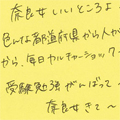 奈良女いいところよ〜
色んな都道府県から人が
から、毎日カルチャーショック
受験勉強がんばって〜
奈良女きて〜